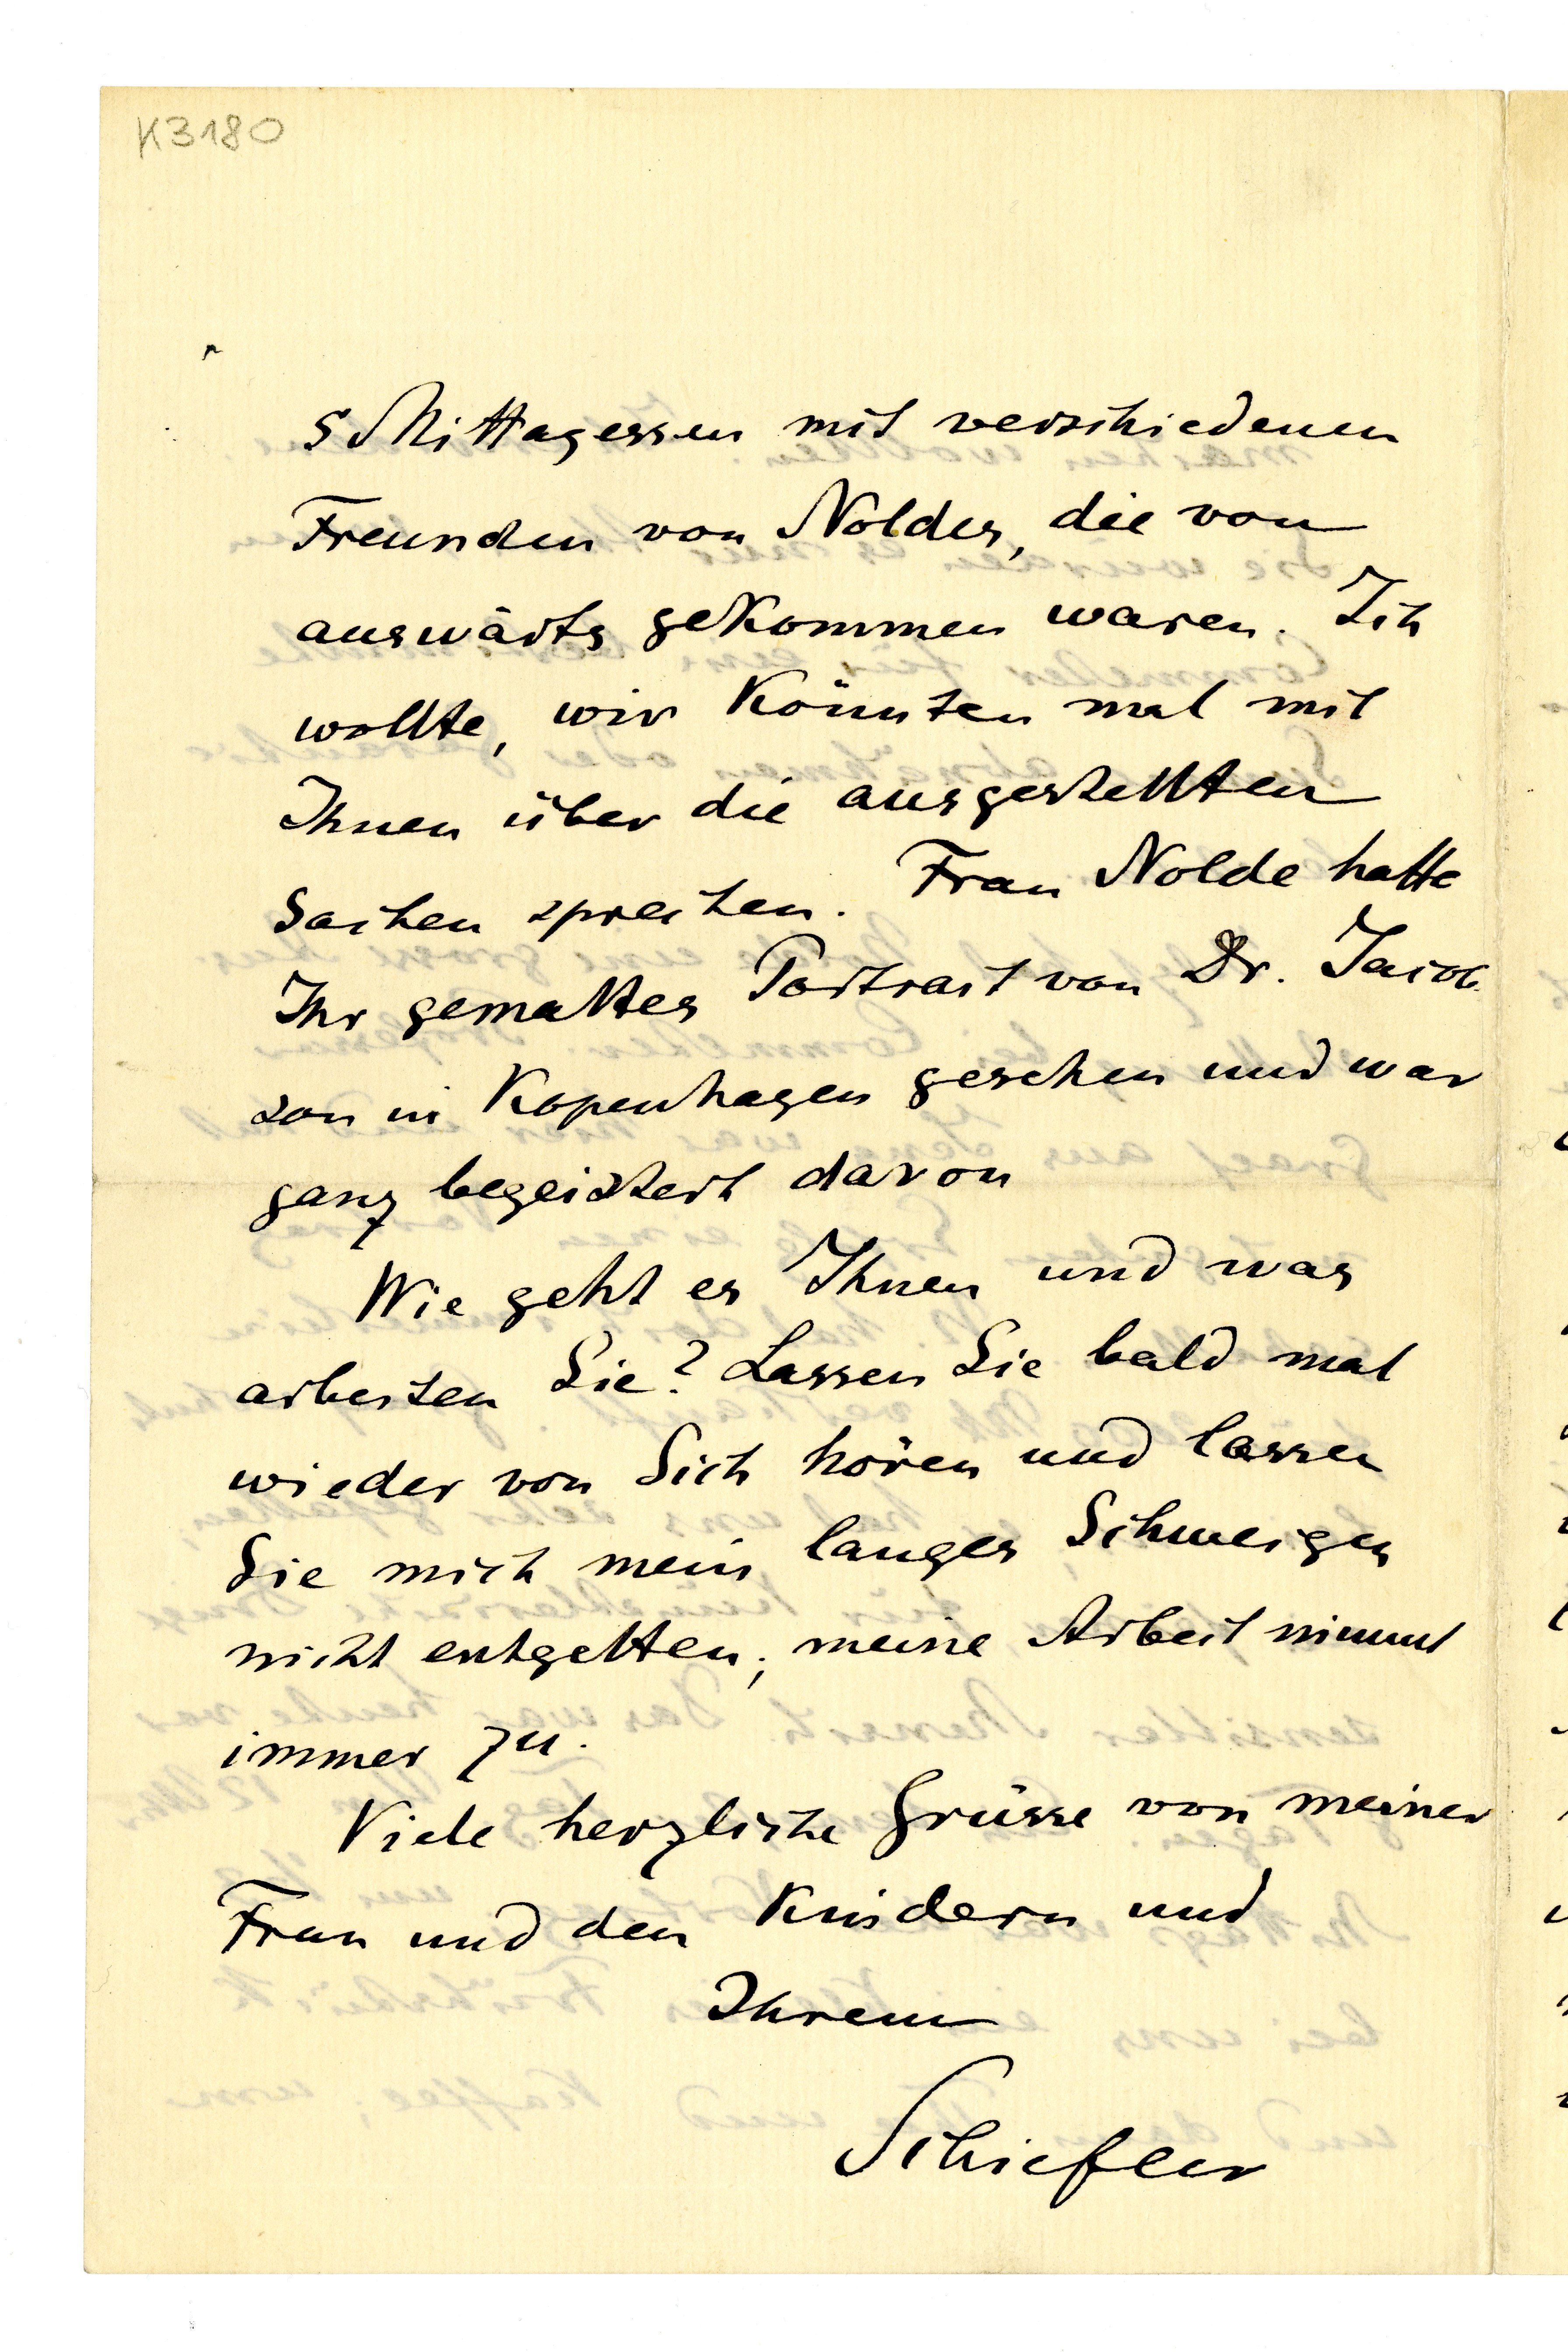 K3180
5 Mittagessen mit verschiedenen
Freunden von Noldes, die von
auswärts gekommen waren. Ich
wollte, wir könnten mal mit
Ihnen über die ausgestellten
Sachen sprechen. Frau Nolde hatte
Ihr gemaltes Portrait von Dr. Jacob
son in Kopenhagen gesehen und war
ganz begeistert davon
Wie geht es Ihnen und was
arbeiten Sie? Lassen Sie bald mal
wieder von Sich hören und lassen
Sie mich mein langes Schweigen
nicht entgelten; meine Arbeit nimmt
immer zu.
Viele herzliche Grüsse von meiner
Frau und den Kindern und
Ihrem
Schiefler